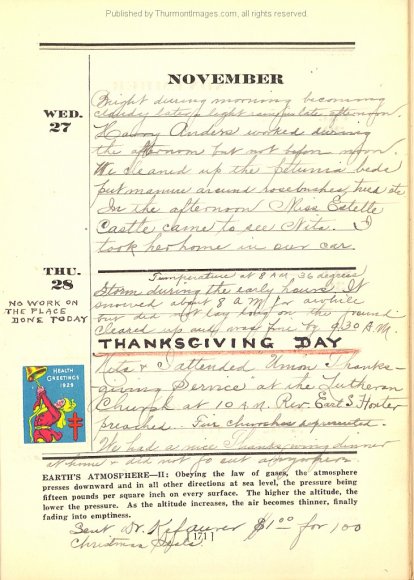 Published by ThurmontImages.com, all rights reserved.
NOVEMBER
WED.
27
Bright during morning becoming
cloudy later, light rain, late afternoon.
Harry Anders worked during
the afternoon but not before noon.
We cleaned up the petunia beds
put manure around rosebushes,
In the afternoon Miss Estelle
Castle came to see Nita. I
took her home in our car.
THU.
28
NO WORK ON
THE PLACE
DONE TODAY
Temperature at 8 A.M. 36 degrees
Storm during the early hours. It
snowed about 8 A M for awhile
but did not lay long on the ground
cleared up and was fine by 9.30 A.M.
THANKSGIVING DAY
Nita & I attended Union Thanks-
giving Service at the Lutheran
Church at 10 A.M. Rev. Earl S. Hoxter
preached. churches represented.
We had a nice Thanksgiving dinner
at home & did not go out anywhere.
HEALTH
GREETINGS
1929
EARTH'S ATMOSPHERE—II: Obeying the law of gases, the atmosphere
presses downward and in all other directions at sea level, the pressure being
fifteen pounds per square inch on every surface. The higher the altitude, the
lower the pressure. As the altitude increases, the air becomes thinner, finally
fading into emptiness.
Sent Dr. Kefauver $1.00 for 100
Christmas Seals
[171]